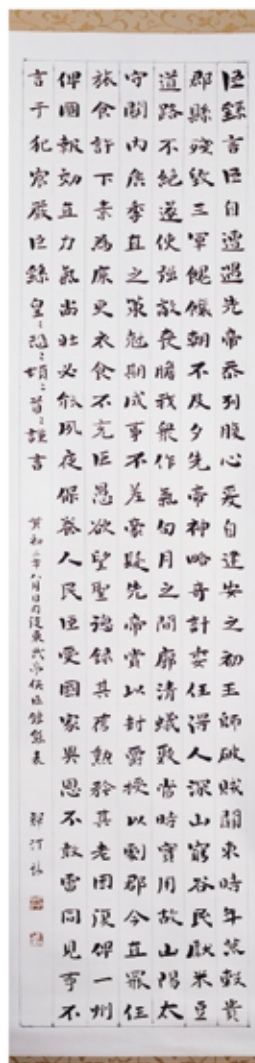 臣繇言臣自遭遇先帝忝列腹心爰自建安之初王師破賊關東時年荒穀貴
郡縣殘毀三軍餽饟朝不及夕先帝神略奇計委任得人深山窮谷民獻米豆
道路不絕遂使強敵喪膽我衆作氣旬月之間廓清蟻聚當時實用故山陽太
守關內侯季直之策剋期成事不差豪髮先帝賞以封爵授以劇郡今直罷任
旅食許下素為廉吏衣食不充臣愚欲望聖德錄其舊勳矜其老困復俾一州
俾圖報効直力氣尚壯必能夙夜保養人民臣受國家異恩不敢雷同見事不
言干犯宸嚴臣繇皇〻恐〻頓〻首〻謹言 黃初二年八月日司徒東武亭侯臣鍾繇表